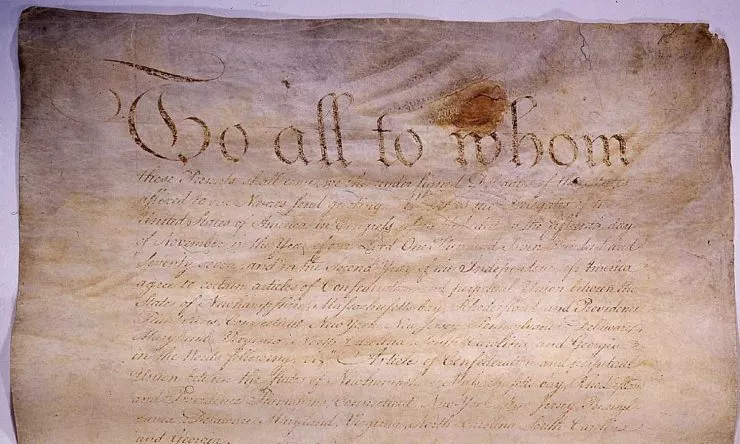 To all to whom
these Presents shall come, we the undersigned Delegates of the States
affixed to our Names send greeting. Whereas the Delegates of the
United States of America in Congress assembled did on the fifteenth day
of November in the Year of our Lord One Thousand Seven Hundred and
Seventy seven, and in the Second Year of the Independence of America
agree to certain articles of Confederation and perpetual Union between the
States of Newhampshire, Massachusetts-bay, Rhodeisland and Providence
Plantations, Connecticut, New York, New Jersey, Pennsylvania, Delaware,
Maryland, Virginia, North-Carolina, South-Carolina, and Georgia
in the Words following, viz. Articles of Confederation and perpetual
Union between the States of Newhampshire, Massachusetts-bay, Rhodeisland
and Providence Plantations, Connecticut, New-York, New-Jersey, Pennsyl-
vania, Delaware, Maryland, Virginia, North-Carolina, South-Carolina
and Georgia